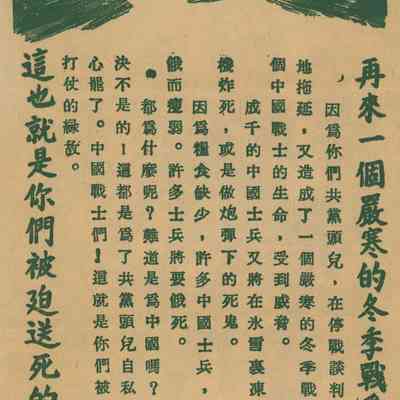 再來一個嚴寒的冬季戰
因爲你們共黨頭兒,在停戰談判
地拖延,又造成了一個嚴寒的冬季戰
個中國戰士的生命,受到威脅。
成千的中國士兵又將在氷雪裏凍
機炸死,或是做炮彈下的死鬼。
因爲糧食缺少,許多中國士兵,
餓而瘦弱。許多士兵將要餓死。
都爲什麼呢?難道是爲中國嗎?
決不是的!這都是爲了共黨頭兒自私
心罷了。中國戰士們!這就是你們被
打仗的緣故。
這也就是你們被迫送死的